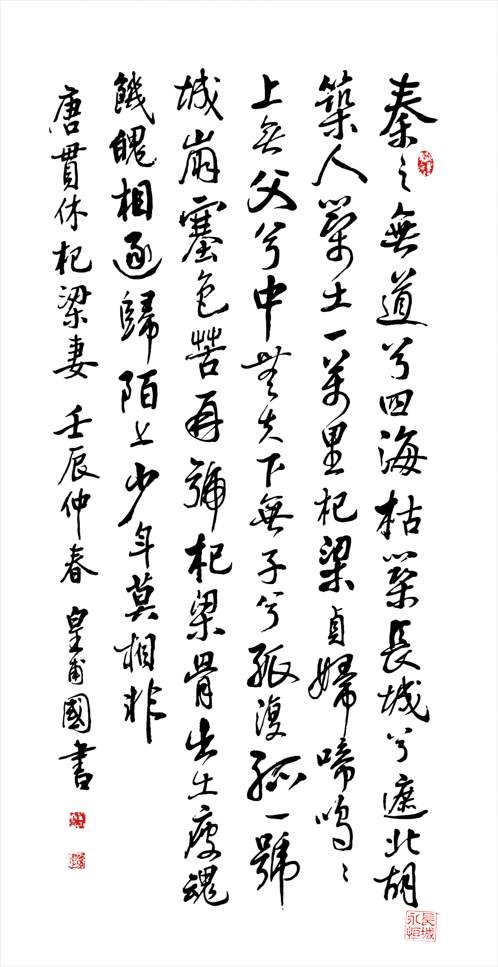 秦之無道兮四海枯築長城兮遮北胡
築人築土一萬里杞梁貞婦啼嗚〻
上無父兮中無夫下無子兮孤復孤一號
城崩塞色苦再號杞梁骨出土疲魂
饑魄相逐歸陌上少年莫相非
唐貫休杞梁妻 壬辰仲春 皇甫國書
長城永恒